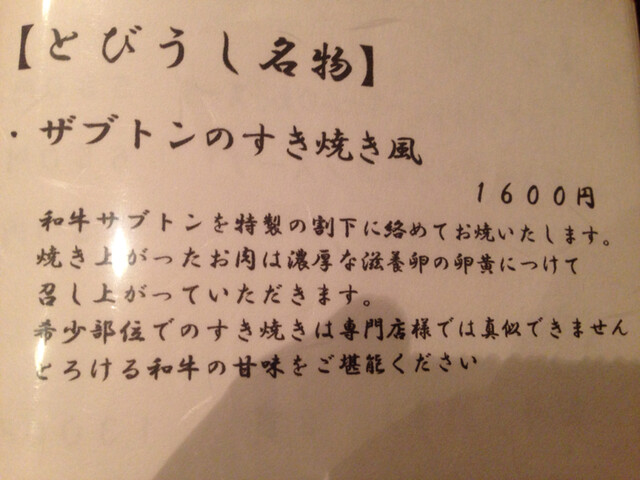 【とびうし名物】
・ザブトンのすき焼き風
1600円
和牛サブトンを特製の割下に絡めてお焼いたします。
焼き上がったお肉は濃厚な滋養卵の卵黄につけて
召し上がっていただきます。
希少部位でのすき焼きは専門店様では真似できません
とろける和牛の甘味をご堪能ください